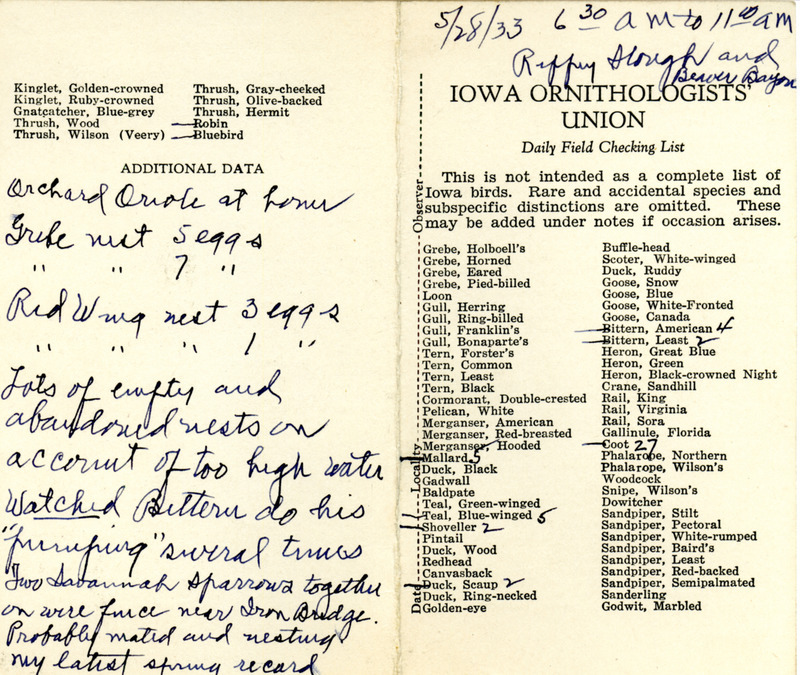 Kinglet, Golden-crowned
Kinglet, Ruby-crowned
Gnatcatcher, Blue-grey
Thrush, Wood
Thrush, Wilson (Veery)
Thrush, Gray-cheeked
Thrush, Olive-backed
Thrush, Hermit
Robin
Bluebird
ADDITIONAL DATA
Orchard Oriole at home
Grebe nest 5 eggs
" " 7 "
Red Wing nest 3 eggs
" " " 1 "
Lots of empty and
abandoned nests on
account of too high water
Watched Bittern do his
"pumping" several times
Two Savannah Sparrows together
on wire fence near Iron Bridge.
Probably mated and nesting
my latest spring record
5/28/33 6 30 a m to 11 00 a m
Rippey Slough and
Beaver Bayou
IOWA ORNITHOLOGISTS'
UNION
Daily Field Checking List
This is not intended as a complete list of
Iowa birds. Rare and accidental species and
subspecific distinctions are omitted. These
may be added under notes if occasion arises.
Date Locality Observer
Grebe, Holboell's
Grebe, Horned
Grebe, Eared
Grebe, Pied-billed
Loon
Gull, Herring
Gull, Ring-billed
Gull, Franklin's
Gull, Bonaparte's
Tern, Forster's
Tern, Common
Tern, Least
Tern, Black
Cormorant, Double-crested
Pelican, White
Merganser, American
Merganser, Red-breasted
Merganser, Hooded
Mallard 5
Duck, Black
Gadwall
Baldpate
Teal, Green-winged
Teal, Blue-winged 5
Shoveller 2
Pintail
Duck, Wood
Redhead
Canvasback
Duck, Scaup 2
Duck, Ring-necked
Golden-eye
Buffle-head
Scoter, White-winged
Duck, Ruddy
Goose, Snow
Goose, Blue
Goose, White-Fronted
Goose, Canada
Bittern, American 4
Bittern, Least 2
Heron, Great Blue
Heron, Green
Heron, Black-crowned Night
Crane, Sandhill
Rail, King
Rail, Virginia
Rail, Sora
Gallinule, Florida
Coot 27
Phalarope, Northern
Phalarope, Wilson's
Woodcock
Snipe, Wilson's
Dowitcher
Sandpiper, Stilt
Sandpiper, Pectoral
Sandpiper, White-rumped
Sandpiper, Baird's
Sandpiper, Least
Sandpiper, Red-backed
Sandpiper, Semipalmated
Sanderling
Godwit, Marbled